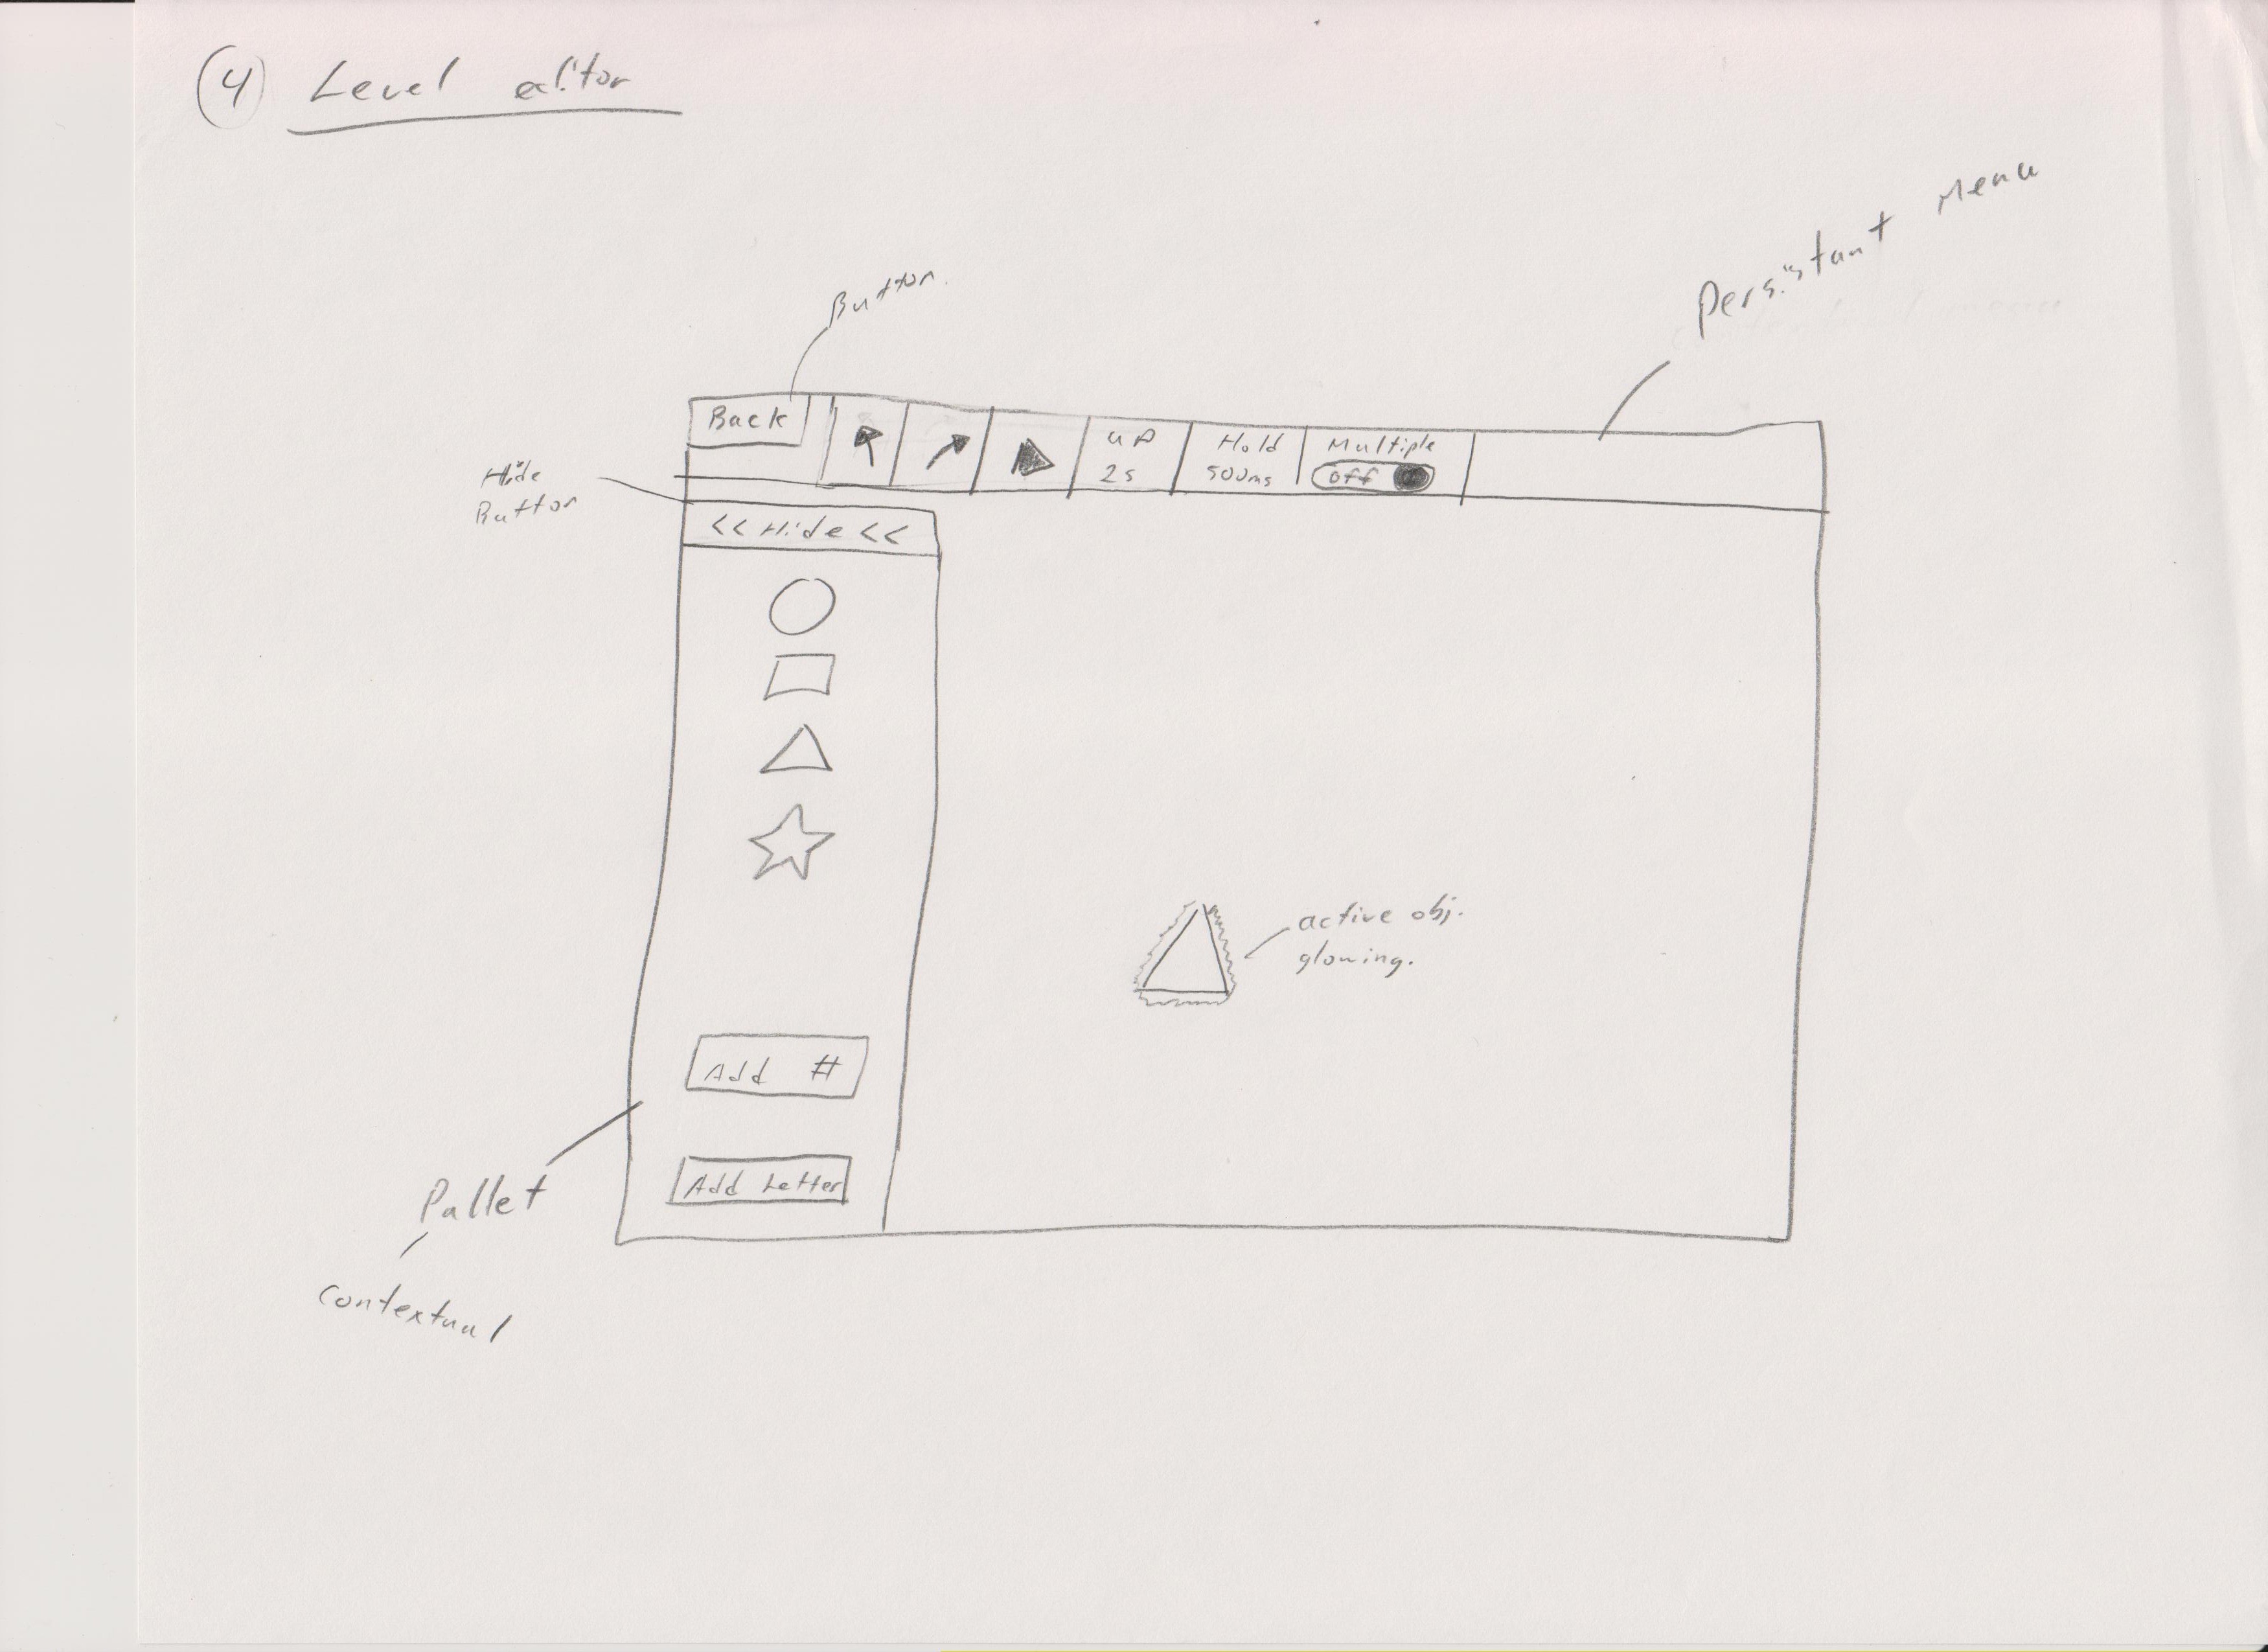 4 Level editor
Persistant Menu
Button.
Back
up
2s
Hold
500ms
Multiple
off
Hide
Button
<< Hide <<
active obj.
glowing.
Add #
Add Letter
Pallet
contextual